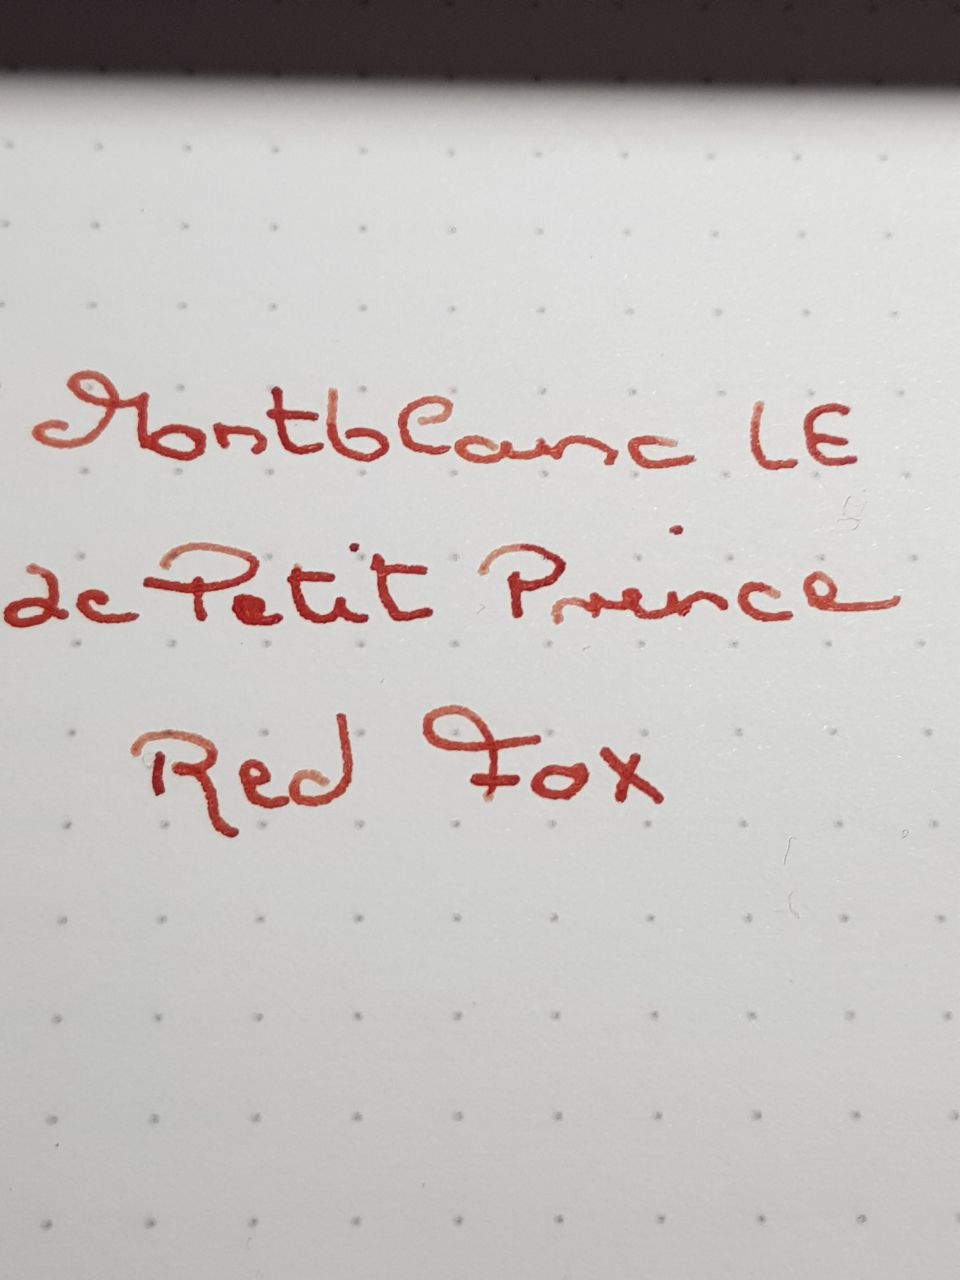 Montblanc LE
de Petit Prince
Red Fox